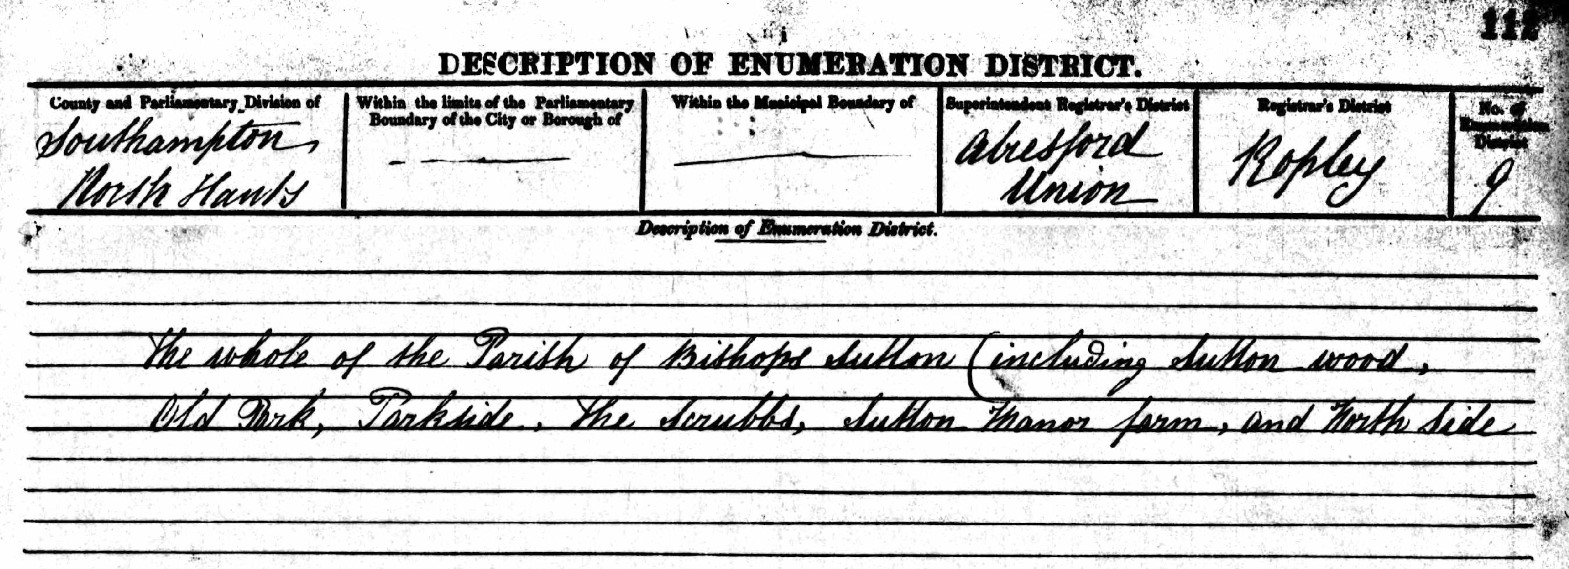 112
DESCRIPTION OF ENUMERATION DISTRICT.
County and Parliamentary Division of
Southampton,
North Hants
Within the limits of the Parliamentary
Boundary of the City or Borough of
Within the Municipal Boundary of
Superintendent Registrar's District
Alresford
Union
Registrar's District
Ropley
No. of
Enumeration
District
9
Description of Enumeration District.
The whole of the Parish of Bishops Sutton (including Sutton wood,
Old Park, Parkside, The Scrubbs, Sutton Manor farm, and North Side